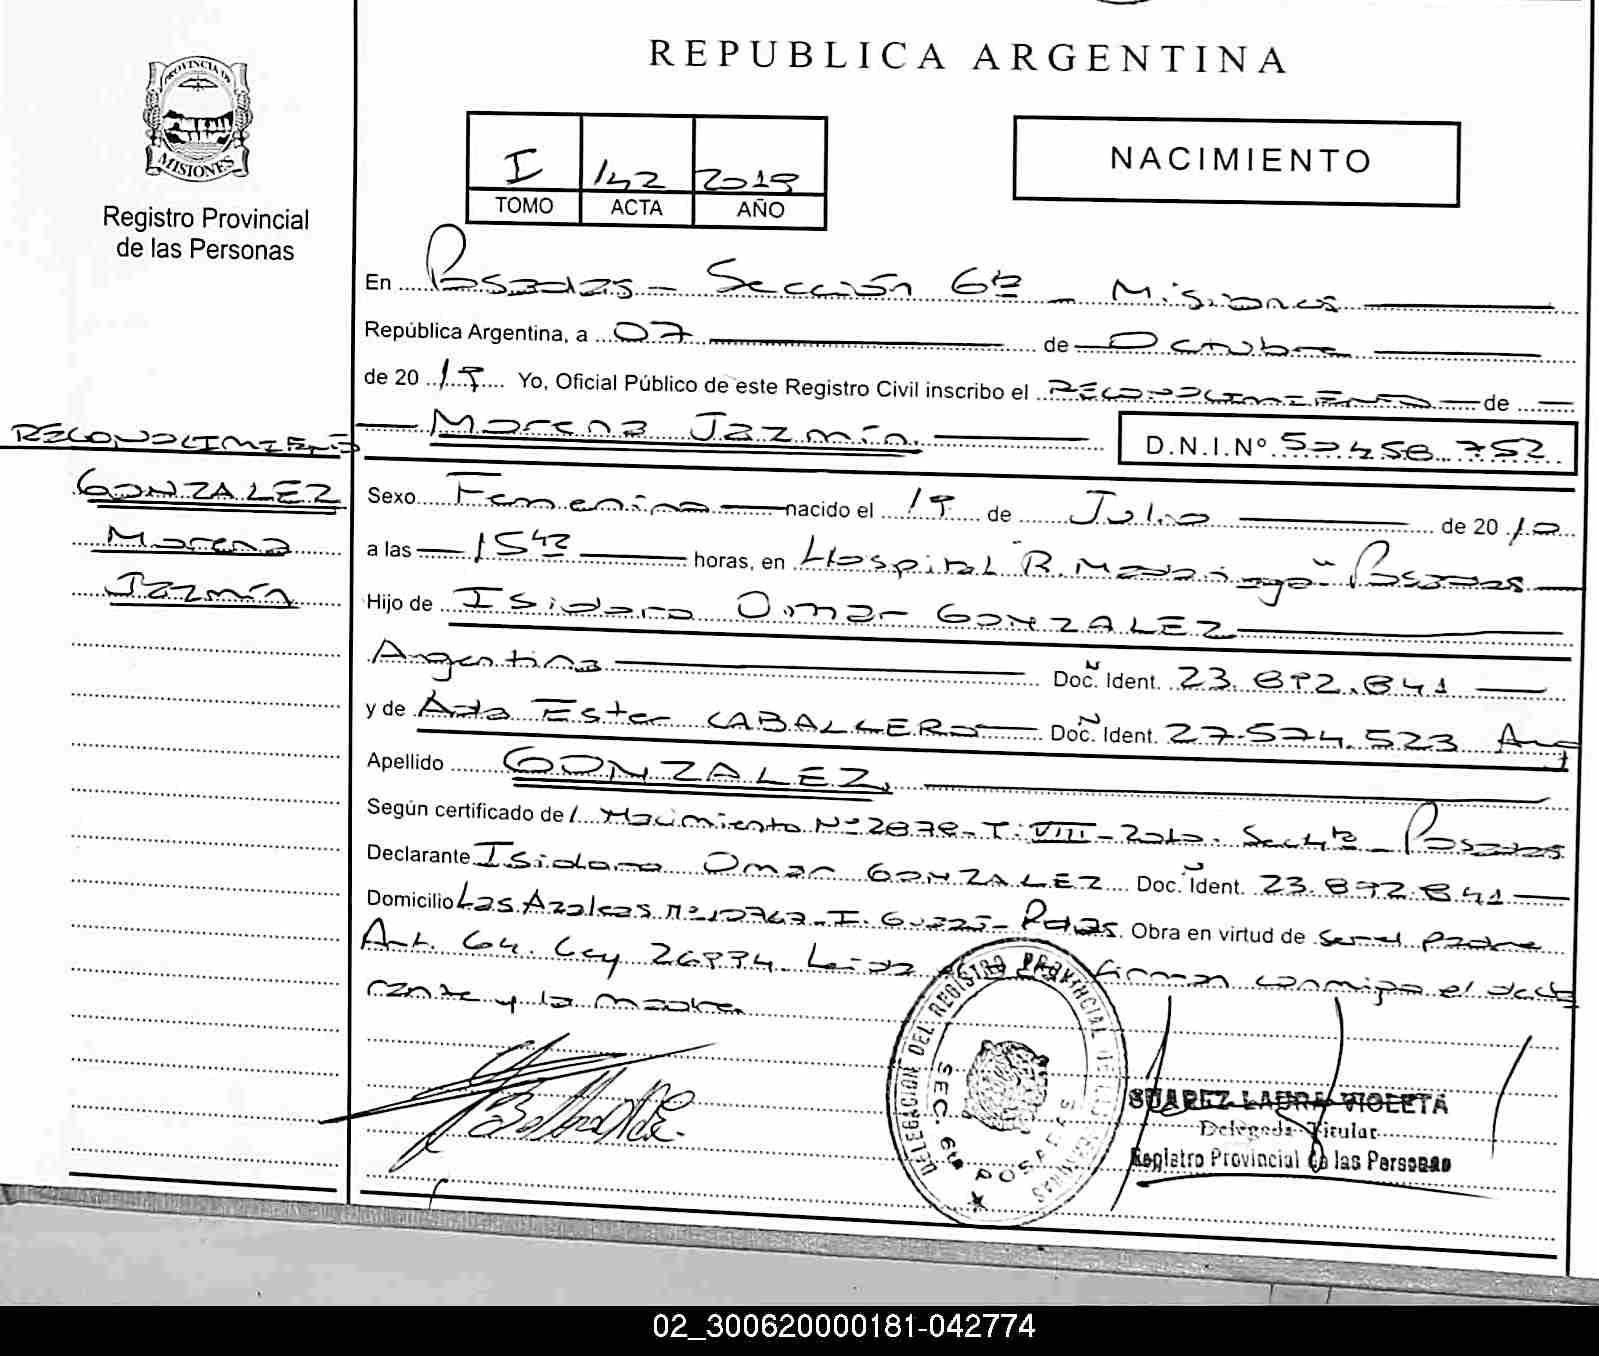 REPUBLICA ARGENTINA
PROVINCIA DE
MISIONES
Registro Provincial
de las Personas
I 142 2019
TOMO ACTA AÑO
NACIMIENTO
En Posadas - Sección 6ta - Misiones
República Argentina, a 07 de Octubre
de 2019 Yo, Oficial Público de este Registro Civil inscribo el RECONOCIMIENTO de
Morena Jazmín. D.N.I.Nº 52.458.752
RECONOCIMIENTO
GONZALEZ
Morena
Jazmín
Sexo Femenino nacido el 19 de Julio de 2010
a las 15 42 horas, en Hospital R. Madariaga - Posadas
Hijo de Isidoro Omar GONZALEZ
Argentina Doc. Ident. 23.892.841
y de Ada Ester CABALLERO Doc. Ident. 27.574.523 Arg
Apellido GONZALEZ.
Según certificado de Nacimiento Nº 2878 - T. VIII - 2010. Secc 4ta - Posadas
Declarante Isidoro Omar GONZALEZ Doc. Ident. 23.892.841
Domicilio Las Azaleas nº 10767 - I. Guazú - Pdas. Obra en virtud de ser el padre
Art. 64. Ley 26994. Leída firman conmigo el decla
rante y la madre.
DELEGACION DEL REGISTRO PROVINCIAL DE LAS PERSONAS
SEC. 6ta POSADAS
SUAREZ LAURA VIOLETA
Delegada Titular
Registro Provincial de las Personas
02_300620000181-042774